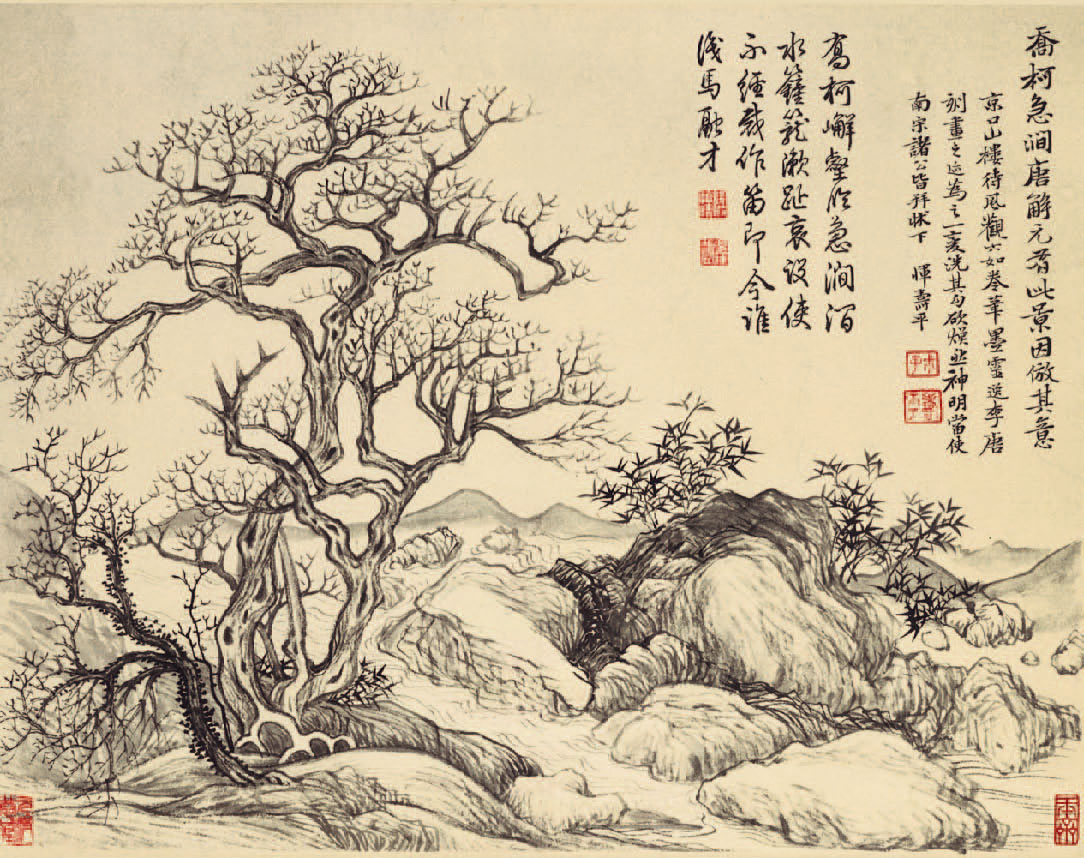 喬柯急澗唐解元有此景因倣其意
京口山樓待風觀六如卷筆墨靈逸李唐
刻畫之迹為之一變洗其勾斫煥然神明當使
南宗諸公皆拜牀下 惲壽平
高柯嶰壑急澗
水籜籠漱趾哀設使
不經裁作笛即今誰
識馬融才